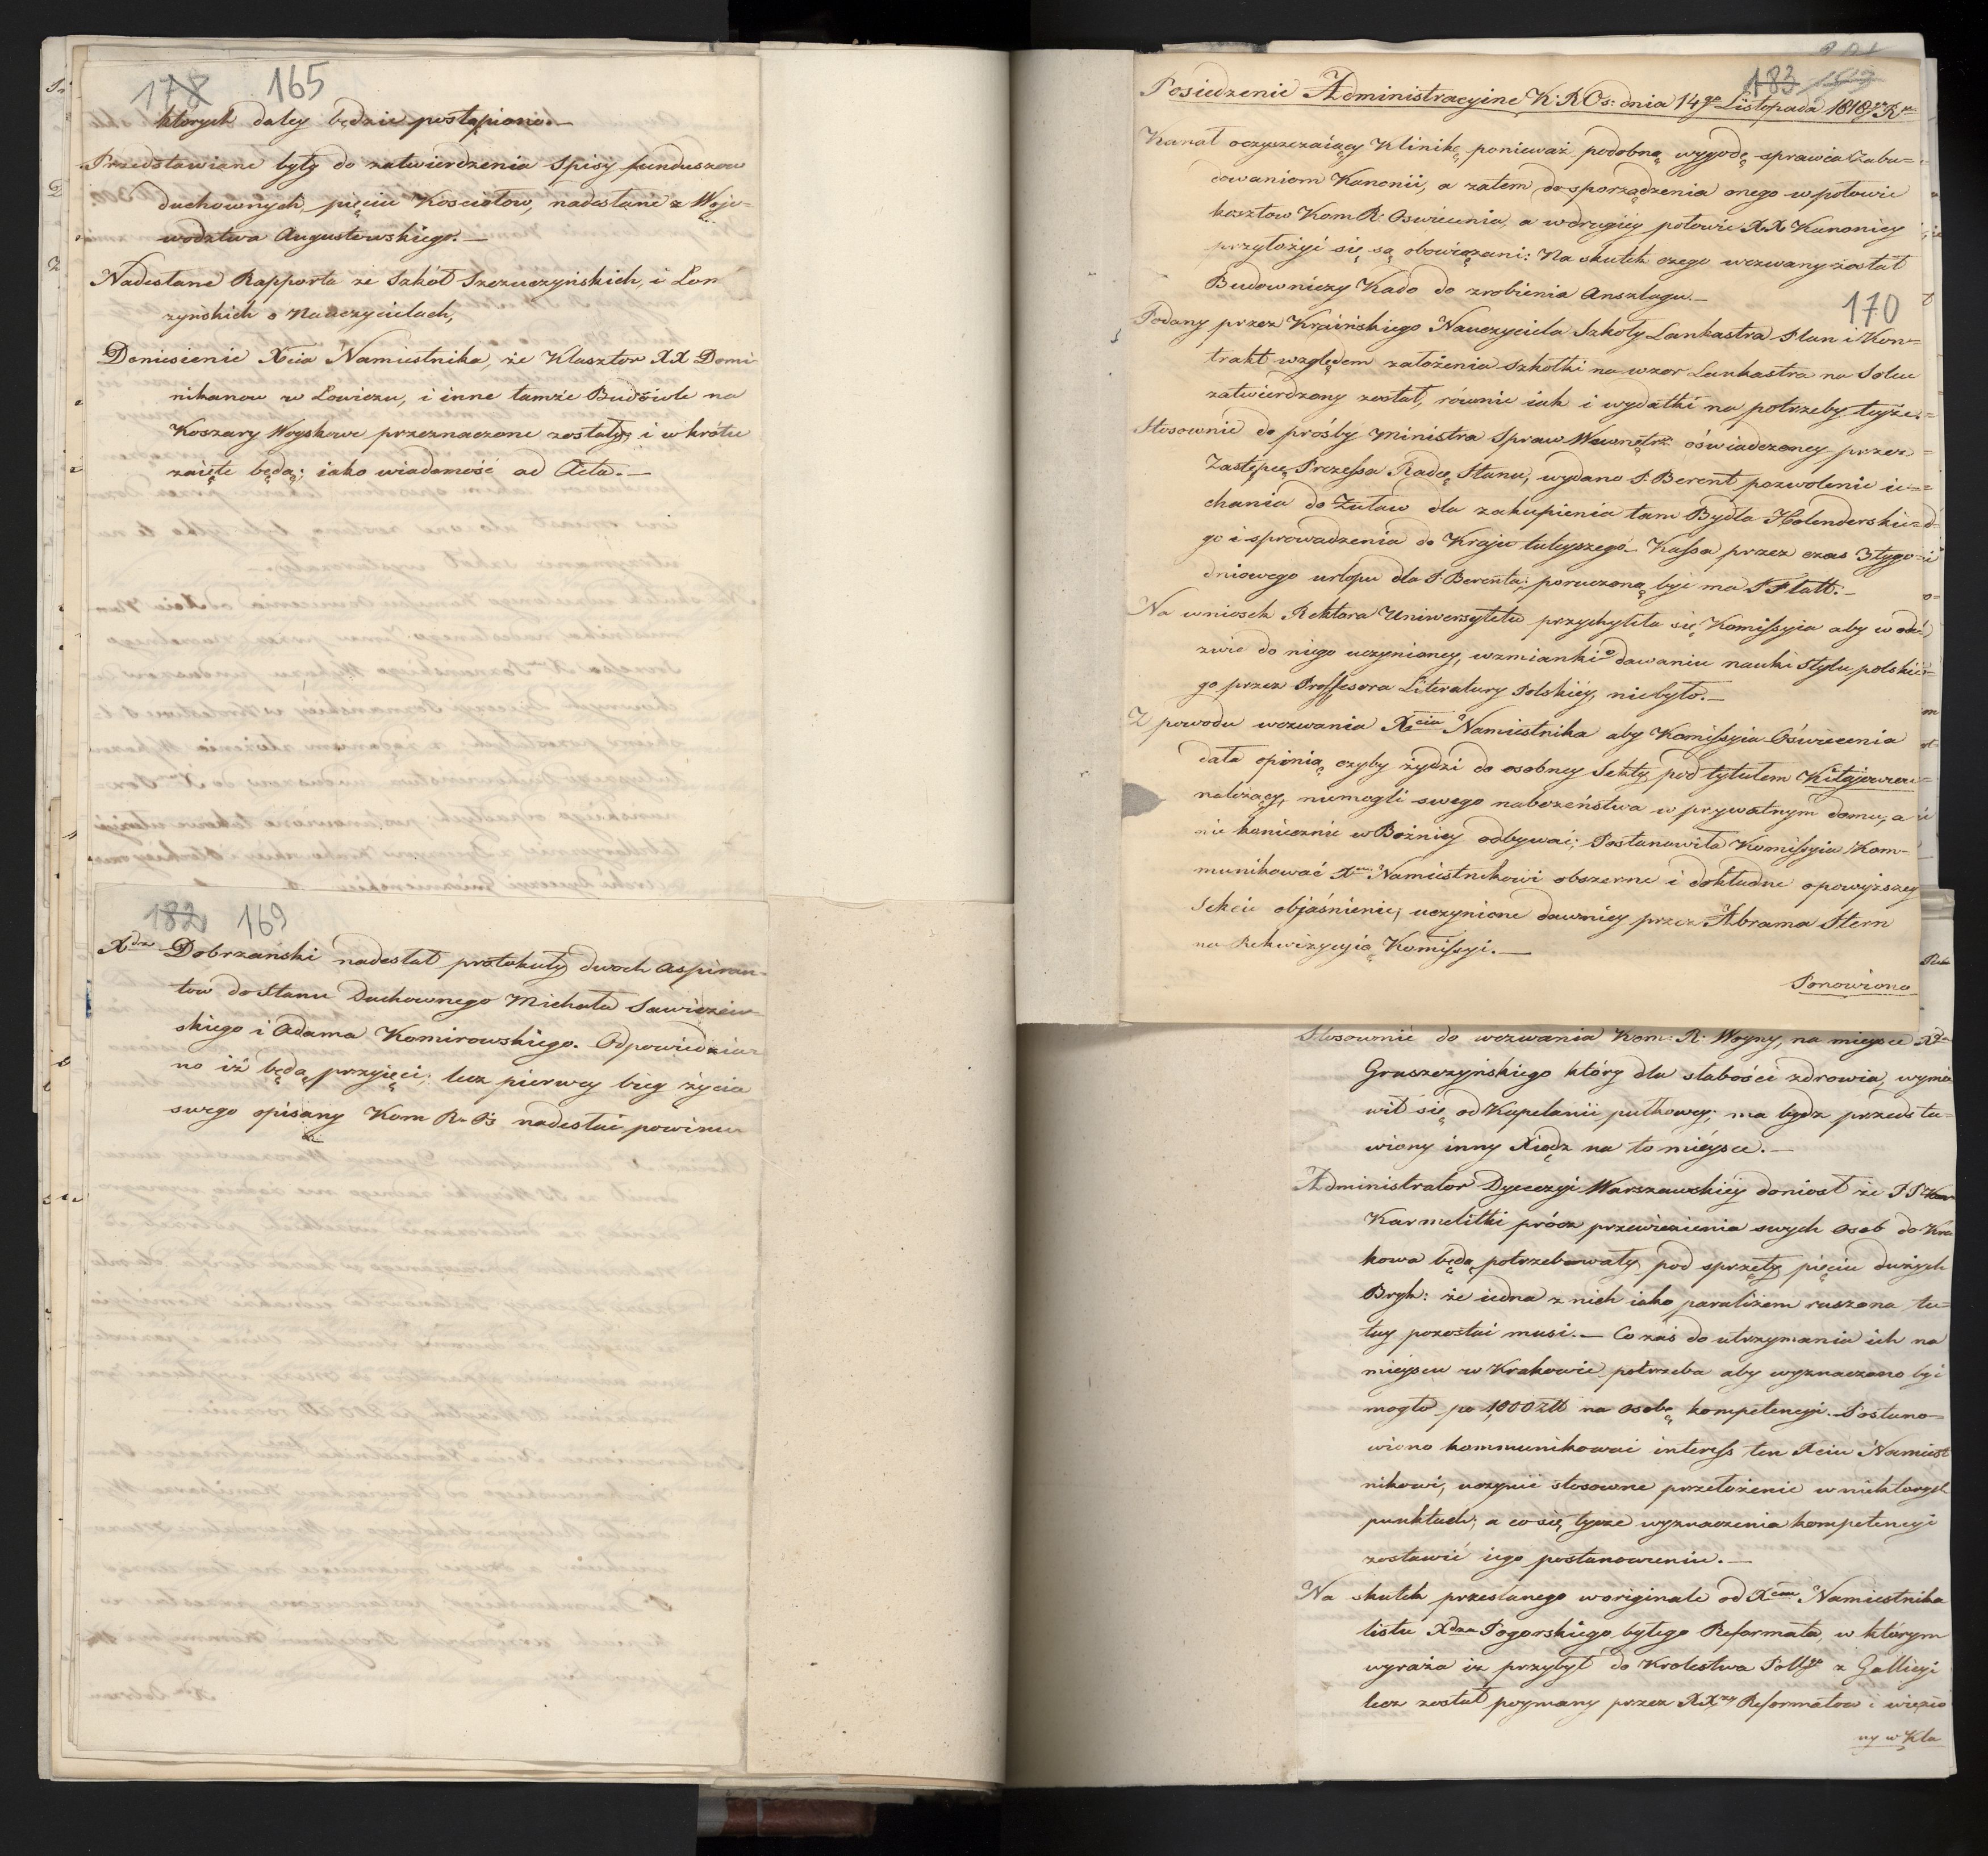 178 165
których daley będzie postąpiono.—
Przedstawiane były do zatwierdzenia Spisy funduszow
duchownych, pięciu Kosciołow, nadesłane z Woje-
wodztwa Augustowskiego.—
Nadesłane Rapporta ze Szkół Szczuczyńskich, i Łom
zyńskich o Nauczycielach,
Doniesienie Xcia Namiestnika, że Klasztor XX Domi
nikanow w Łowiczu, i inne tamże Budowle na
Koszary Woyskowe przeznaczone zostały, i wkrótce
zaięte będą; iako wiadomość ad Acta.—
182 169
Xdz Dobrzański nadesłał protokuły dwoch Aspiran-
tow do Stanu Duchownego Michała Sawiczew
skiego i Adama Komirowskiego. Odpowiedzia-
no iż będą przyięci; lecz pierwey bieg życia
swego opisany Kom R. Oś nadesłać powinni
183
Posiedzenie Administracyine K: R Os: dnia 14go Listopada 1818go Rku
Kanał oczyszczaiący Klinikę, ponieważ podobną wygodę sprawia Zabu=
dowaniom Kanonii, a zatem do sporządzenia onego w połowie
kosztow Kom R: Oswiecenia, a w drugiey połowie XX Kanonicy
przyłożyć się są obowiązani: Na skutek czego wezwany został
Budowniczy Kado do zrobienia Anszlagu.—
170
Podany przez Kraińskiego Nauczyciela Szkoły Lankastra Plan i Kon=
trakt względem założenia szkołki na wzor Lankastra na Solcu
zatwierdzony został, równie iak i wydatki na potrzeby teyże.=
Stosownie do prośby Ministra Spraw Wewnętrz: oświadczoney przez
Zastępcę Prezessa Radcę Stanu, wydano P. Berent pozwolenie ie=
chania do Żuław dla zakupienia tam Bydła Holenderskie=
go i sprowadzenia do Kraju tuteyszego.— Kassa przez czas 3 tygo=
dniowego urlopu dla P. Berenta; poruczoną być ma P Flatt.—
Na wniosek Rektora Uniwersytetu przychyliła się Komissyia aby w ode=
zwie do niego uczynioney, wzmianki o dawaniu nauki Stylu polskie=
go przez Professora Literatury Polskiéy, niebyło.—
Z powodu wezwania Xcia Namiestnika aby Komissyia Oświecenia
dała opinią czyby żydzi do osobney Sekty pod tytułem Kitajowcow
należący, niemogli swego nabożeństwa w prywatnym domu, a
nie koniecznie w Bożnicy odbywać; Postanowiła Komissyia Kom-
munikować Xciu Namiestnikowi obszerne i dokładne o powyższey
Sekcie objaśnienie, uczynione dawniey przez Abrama Stern
na Rekwizycyią Komissyi.—
Ponowiono
Stosownie do wezwania Kom: R: Woyny, na mieysce Xdza
Gruszczyńskiego który dla słabości zdrowia, wymó
wił się od Kapelanii pułkowey; ma bydz przedsta=
wiony inny Xiądz na to miéysce.—
Administrator Dyecezyi Warszawskiéy doniosł że PP
Karmelitki prócz przewiezienia swych osob do Kra
kowa będą potrzebowały pod sprzęty pięciu dużych
Bryk: że iedna z nich iako paraliżem ruszona tu=
tay pozostać musi.— Co zaś do utrzymania ich na
mieyscu w Krakowie potrzeba aby wyznaczono być
mogło po 1,000 złł na osobę kompetencyi. Postano=
wiono kommunikować interess ten Xciu Namiest
nikowi, uczynić stosowne przełożenie w niektorych
punktach; a co się tycze wyznaczenia kompetencyi
zostawić iego postanowieniu.—
Na skutek przesłanego w originale od Xcia Namiestnika
listu Xdza Pogorskiego byłego Reformata, w którym
wyraża iz przybył do Krolestwa Polgo z Gallicyi
lecz został poymany przez XXzy Reformatow i więzio
ny w Kla